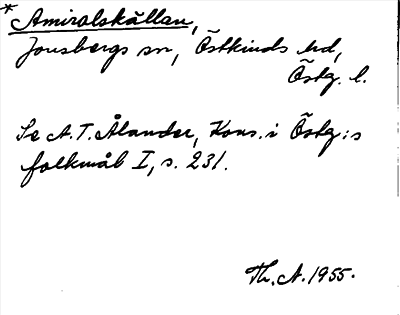 * Amiralskällan,
Jonsbergs sn, Östkinds hd,
Östg. l.
Se A.T. Ålander, Kons. i Östg:s
folkmål I, s. 231.
Th. A. 1955.